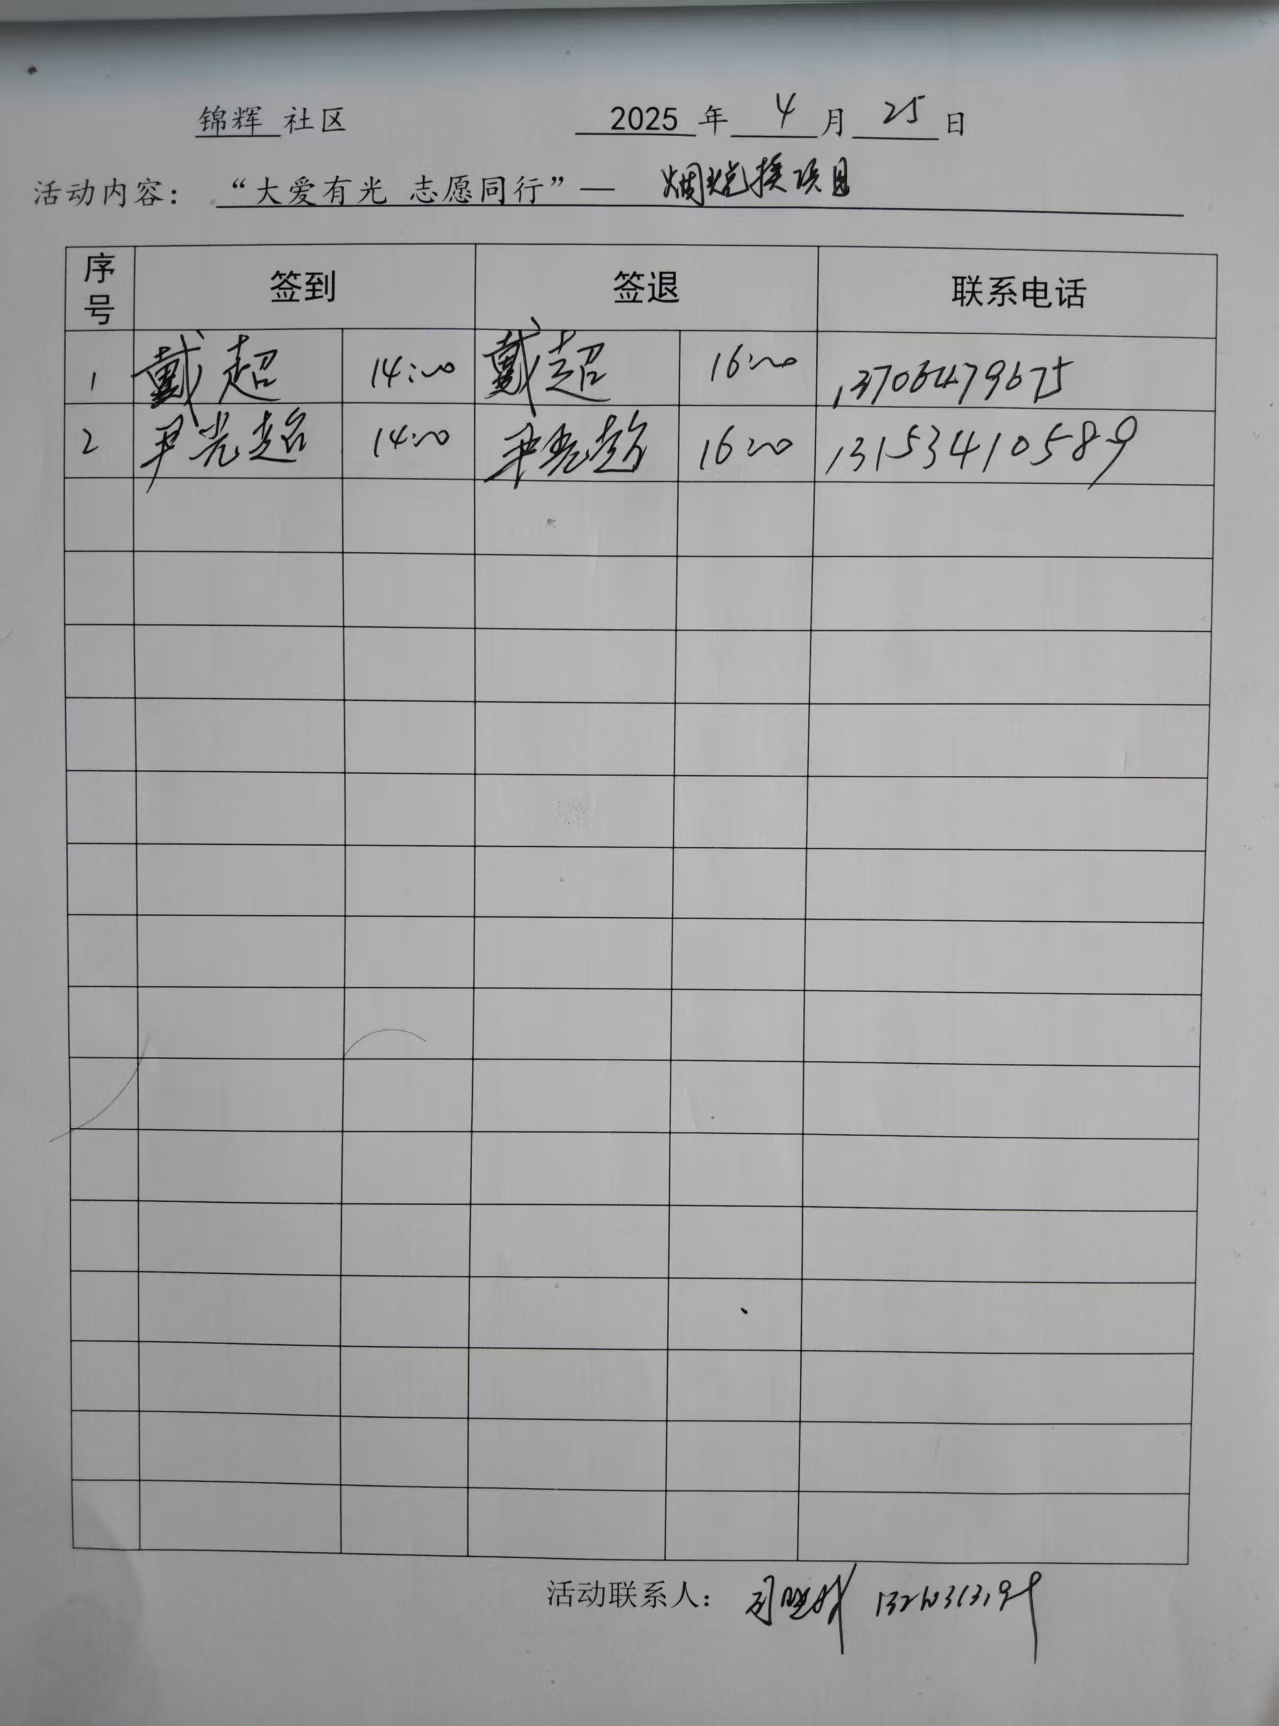 锦辉 社区 2025 年 4 月 25 日
活动内容：“大爱有光 志愿同行”— 烟 换项目
序号 签到 签退 联系电话
1 戴超 14:00 戴超 16:00 13706479675
2 尹光超 14:00 尹光超 16:00 13153410589
活动联系人：